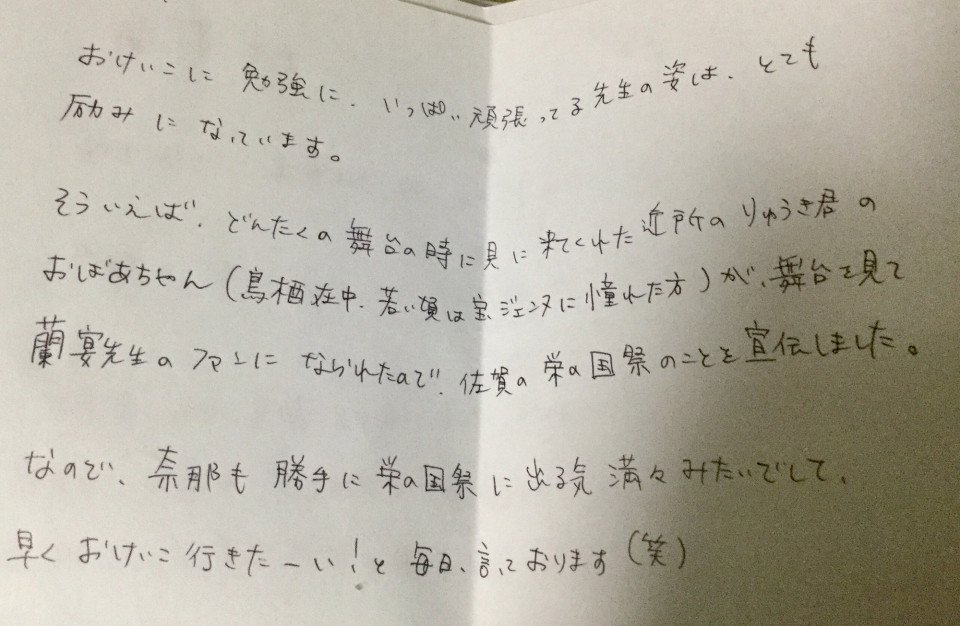 おけいこに勉強に、いっぱい頑張ってる先生の姿は、とても
励みになっています。
そういえば、どんたくの舞台の時に見に来てくれた近所のりゅうき君の
おばあちゃん(鳥栖在中、若い頃は宝ジェンヌに憧れた方)が、舞台を見て
蘭宴先生のファンになられたので、佐賀の栄の国祭のことを宣伝しました。
なので、奈那も勝手に栄の国祭に出る気満々みたいでして、
早くおけいこ行きたーい!と毎日、言っております(笑)